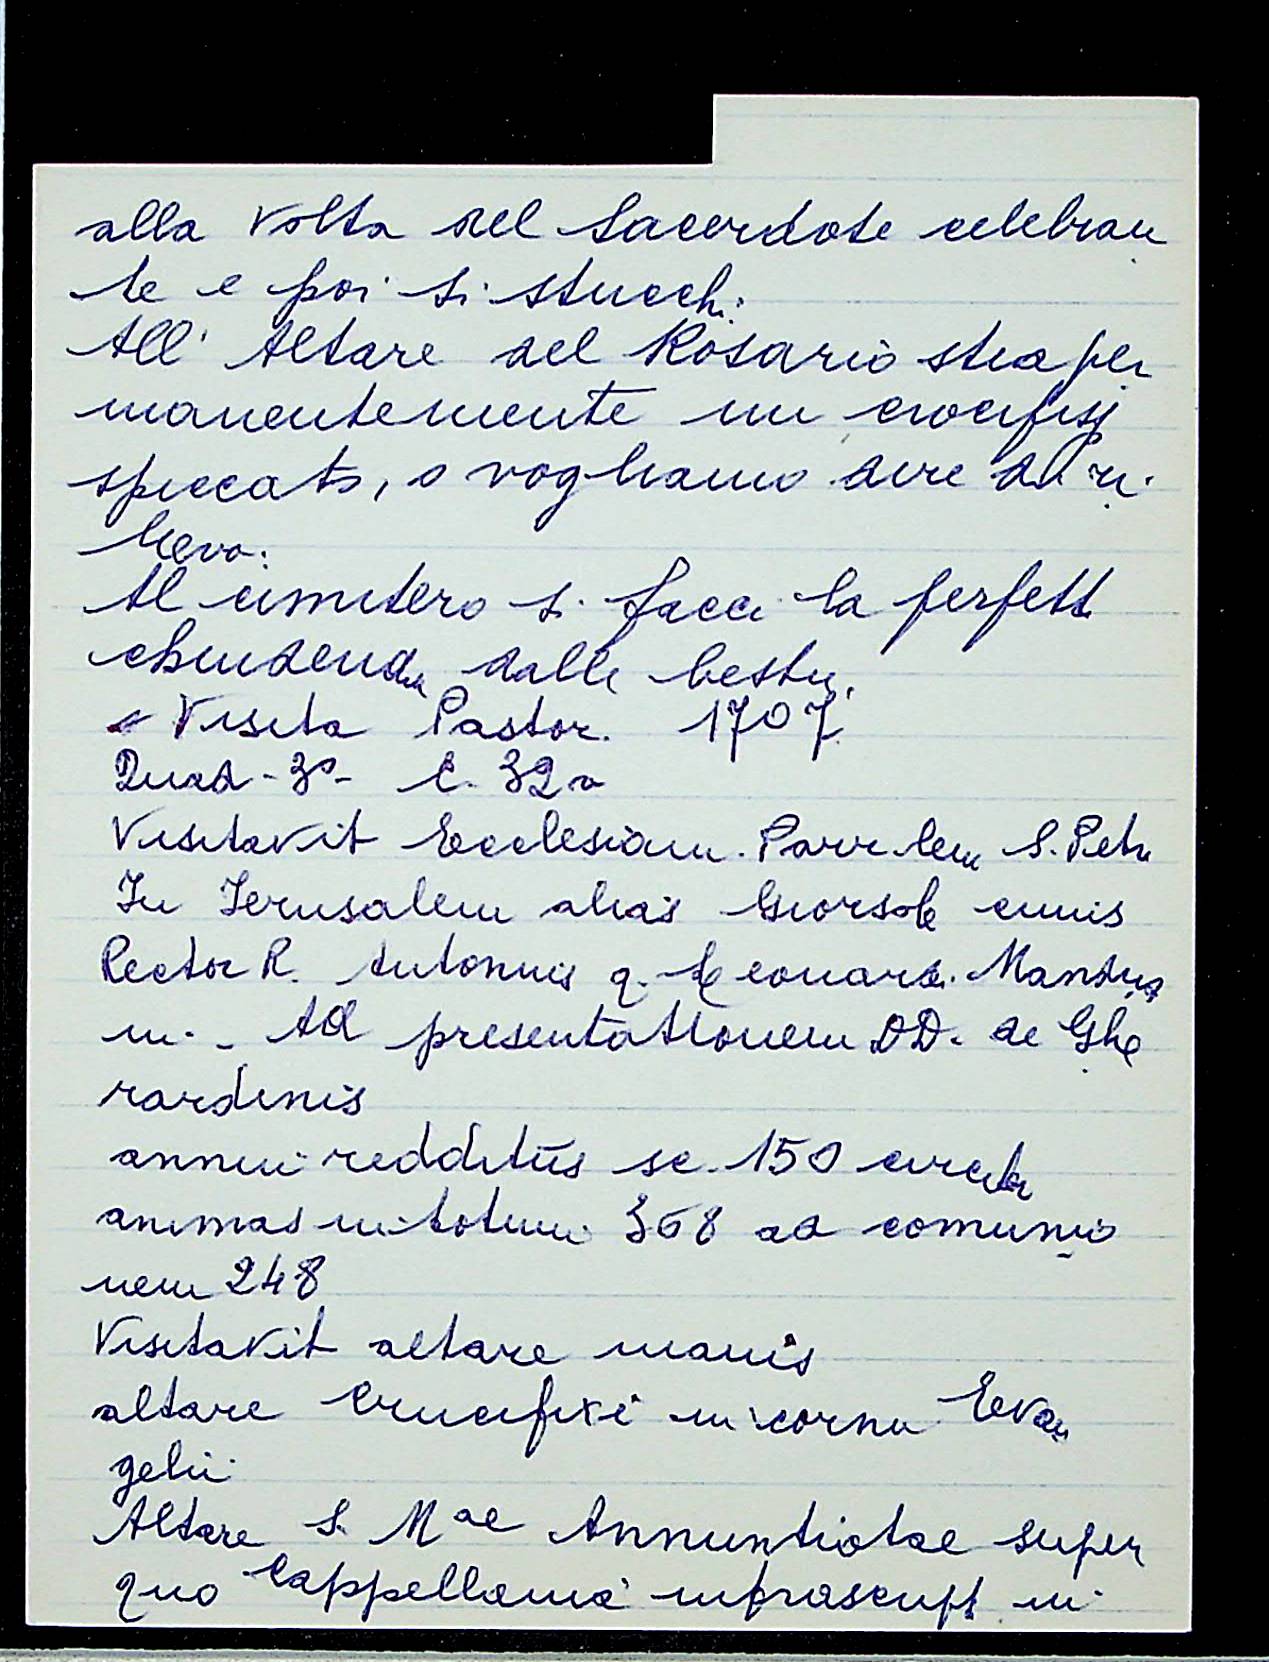 alla volta del Sacerdote celebran
te e poi si stucchi.
All' Altare del Rosario stia per
manentemente un crocifisj
spiccato, o vogliamo dire di ri
lievo.
Al cimitero si facci la perfett
chiudenda dalle bestie.
Visita Pastor. 1707
Quad - 3º - C. 32
Visitavit Ecclesiam Parr.lem S. Petri
In Jerusalem alias Giorsole cuius
Rector R. Antonius q. Leonardi
Ad presentationem DD. de Ghe
rardinis
annui redditus sc. 150 circiter
animas in totum 368 ad comunio
nem 248
Visitavit altare maius
altare Crucifixi in cornu Evan
gelii
Altare S. Mae Annuntiatae super
quo Cappellania infrascript in